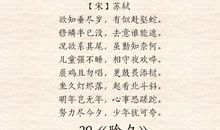 【宋】苏轼
欲知垂尽岁，有似赴壑蛇。
修鳞半已没，去意谁能遮。
况欲系其尾，虽勤知奈何。
儿童强不睡，相守夜欢哗。
晨鸡且勿唱，更鼓畏添挝。
坐久灯烬落，起看北斗斜。
明年岂无年，心事恐蹉跎。
努力尽今夕，少年犹可夸。